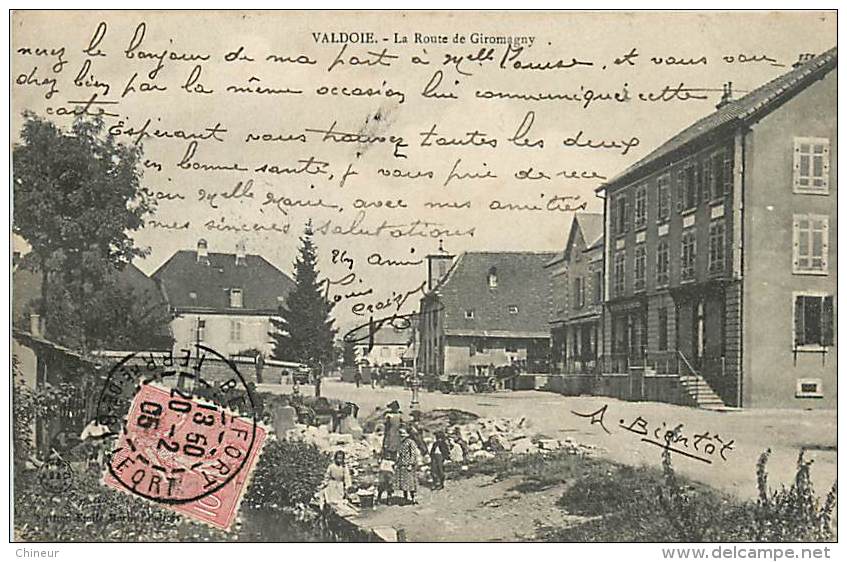 VALDOIE. - La Route de Giromagny
nerez le bonjour de ma part à Mlle Louise, et vous vou
drez bien par la même occasion lui communiquer cette
carte
Espérant vous trouvez toutes les deux
en bonne santé, je vous prie de rece
voir Mlle Marie, avec mes amitiés
mes sincères salutations
Un ami
Louis
A Bientôt
BELFORT
13 50
20 - 2
05
BELFORT
10
© Chineur
delcampe.net